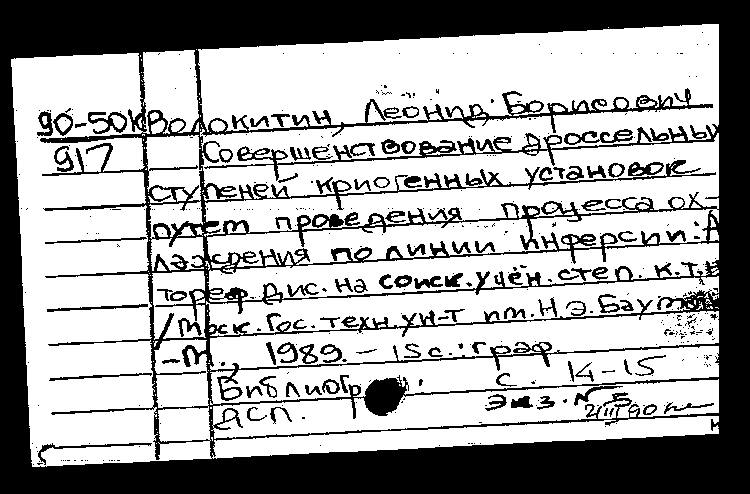 90-50К Волокитин, Леонид Борисович
917 Совершенствование дроссельны
ступеней криогенных установок
путем проведения процесса ох-
лаждения по линии инферсии: А
тореф. дис. на соиск. учён. степ. к.т.н
/ Моск. гос. техн. ун-т им. Н.Э. Баумана
-М., 1989. - 15с.: граф.
Библиогр.: с. 14-15
ДСП. Экз. № 5